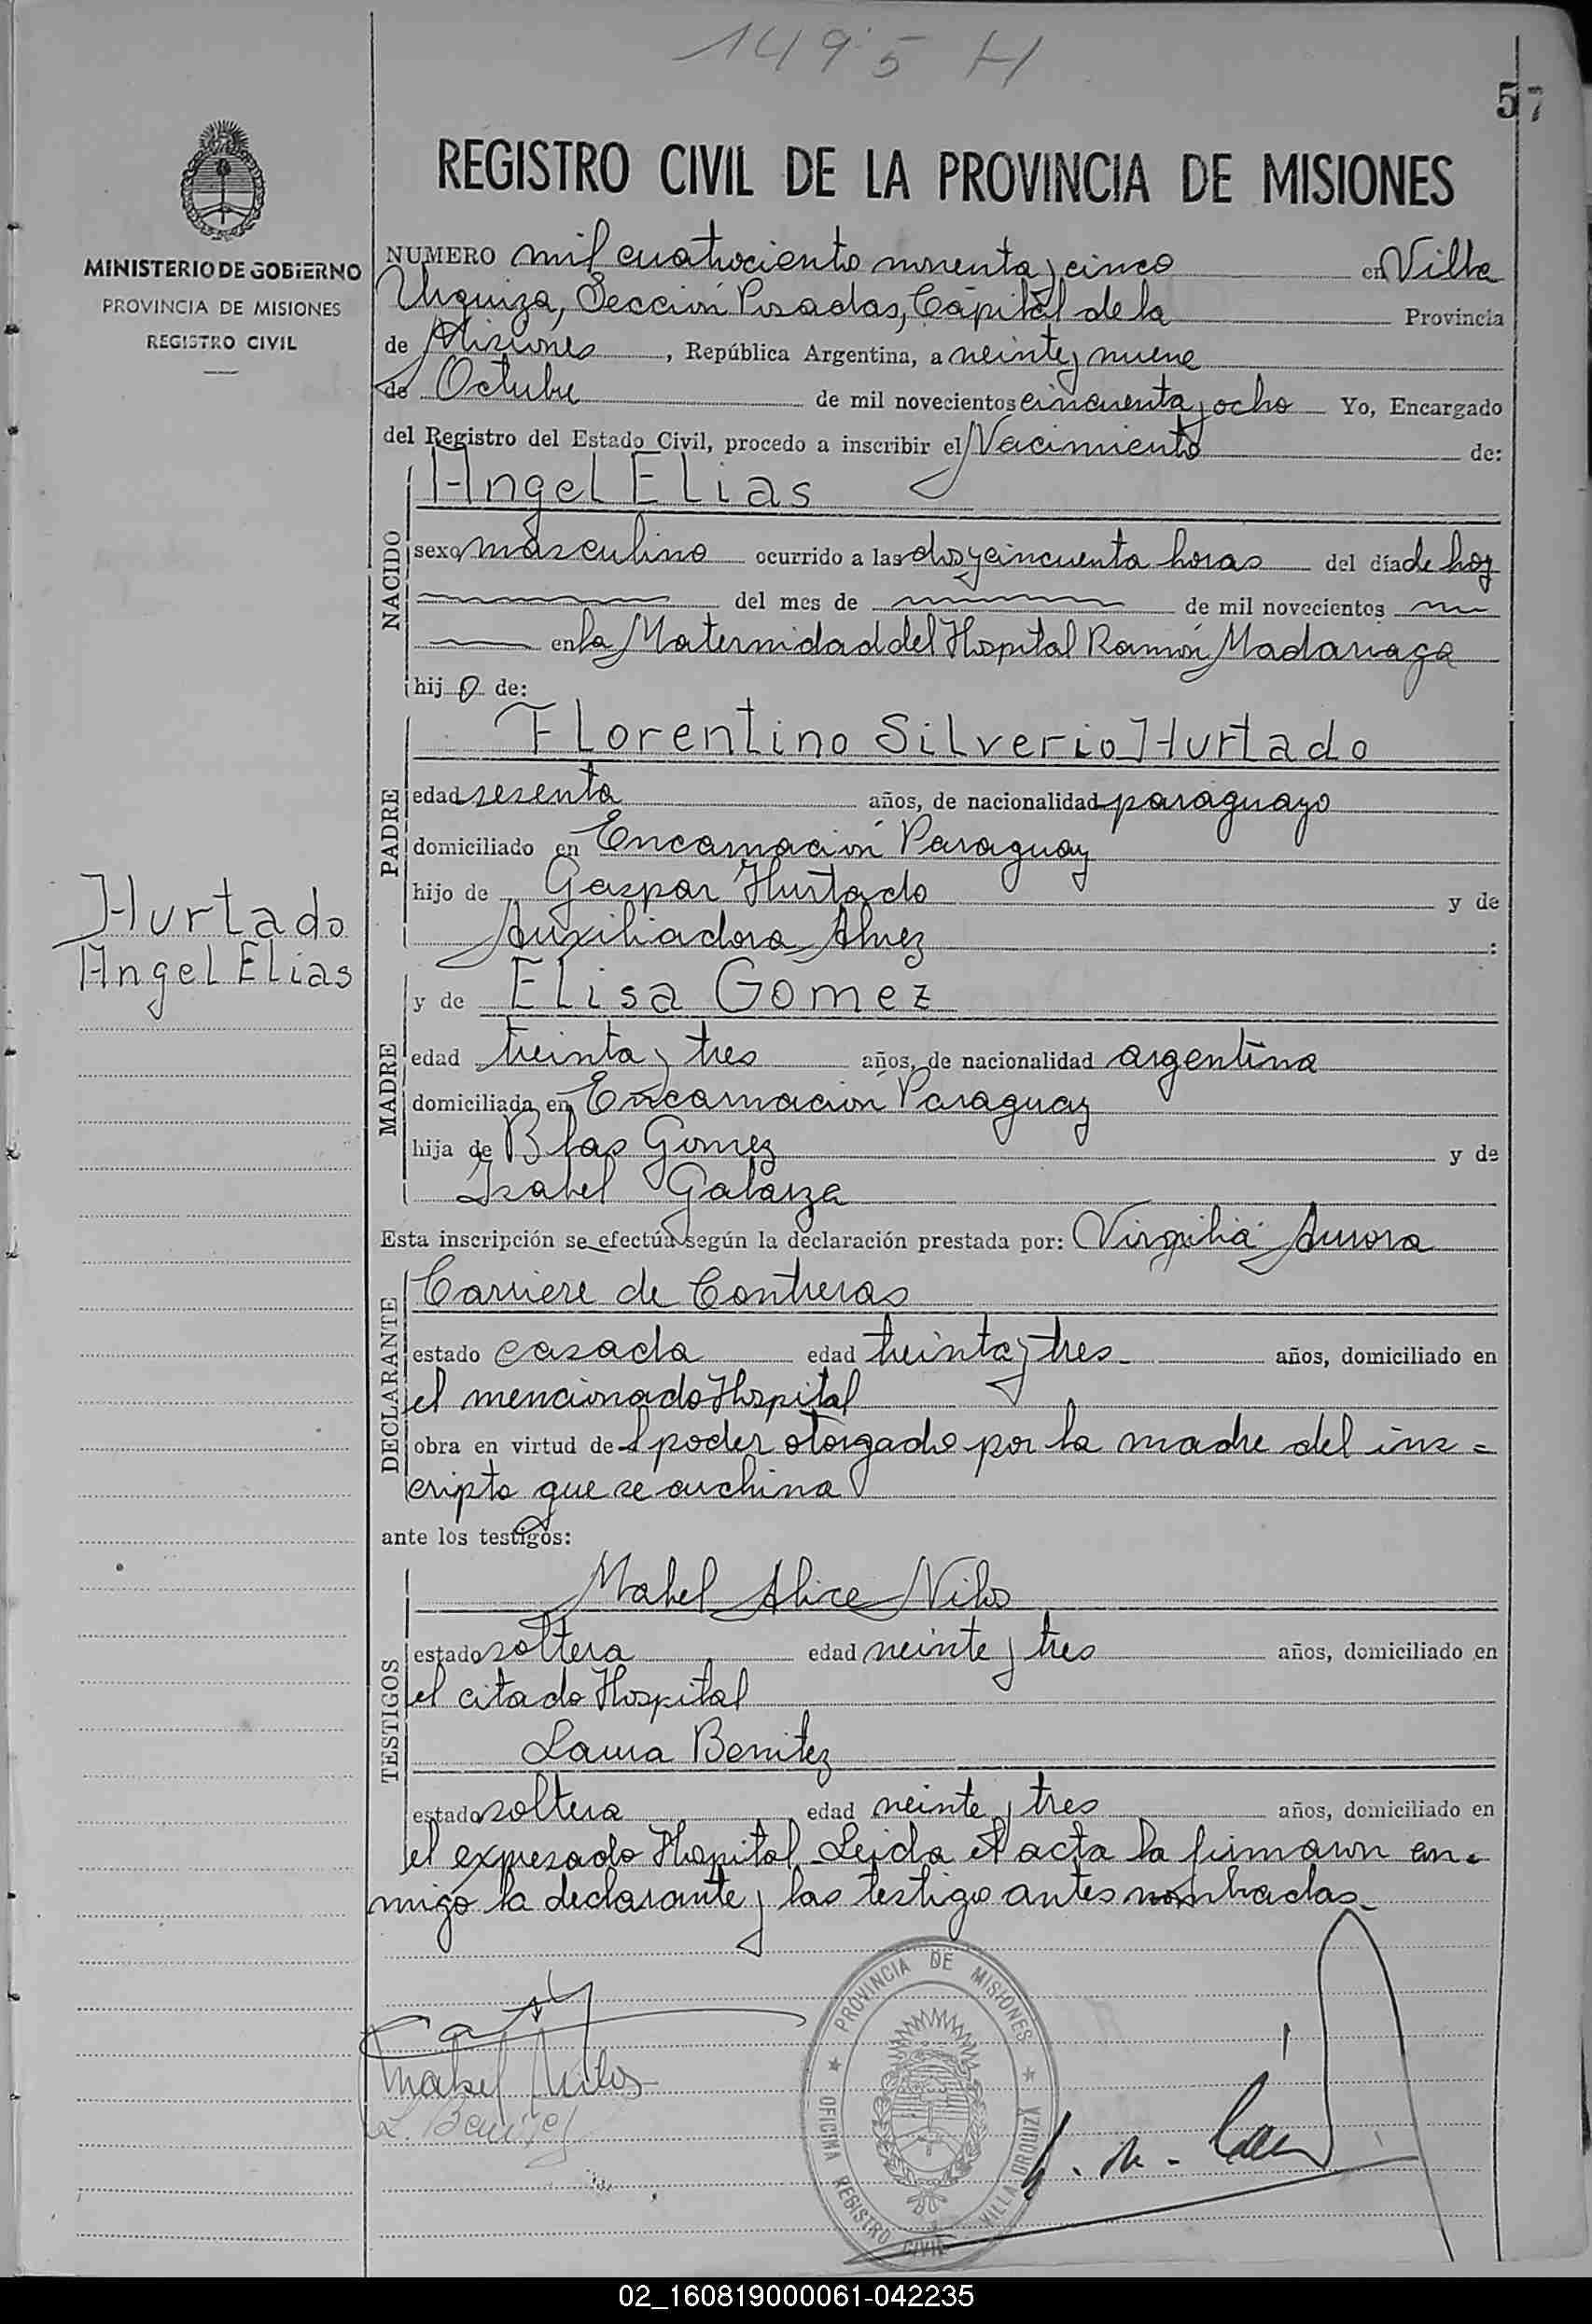 1495 H
57
REGISTRO CIVIL DE LA PROVINCIA DE MISIONES
MINISTERIO DE GOBIERNO
PROVINCIA DE MISIONES
REGISTRO CIVIL
NUMERO mil cuatrociento noventa y cinco en Villa
Urquiza, Sección Posadas, Capital de la Provincia
de Misiones, República Argentina, a veinte y nueve
de Octubre de mil novecientos cincuenta y ocho Yo, Encargado
del Registro del Estado Civil, procedo a inscribir el Nacimiento de:
NACIDO
Angel Elias
sexo masculino ocurrido a las dos y cincuenta horas del día de hoy
del mes de de mil novecientos
en la Maternidad del Hospital Ramón Madariaga
hijo de:
PADRE
Florentino Silverio Hurtado
edad sesenta años, de nacionalidad paraguayo
domiciliado en Encarnación Paraguay
hijo de Gaspar Hurtado y de
Auxiliadora Alvez :
Hurtado
Angel Elias
MADRE
y de Elisa Gomez
edad treinta y tres años, de nacionalidad argentina
domiciliada en Encarnación Paraguay
hija de Blas Gomez y de
Isabel Galarza
Esta inscripción se efectúa según la declaración prestada por: Virgilia Aurora
DECLARANTE
Carriere de Contreras
estado casada edad treinta y tres años, domiciliado en
el mencionado Hospital
obra en virtud del poder otorgado por la madre del ins=
cripto que se archiva
ante los testigos:
TESTIGOS
Mabel Alice Nilos
estado soltera edad veinte y tres años, domiciliado en
el citado Hospital
Laura Benitez
estado soltera edad veinte y tres años, domiciliado en
el expresado Hospital. Leida el acta la firmaron con=
migo la declarante y las testigo antes nombradas.
Mabel Nilos
L. Benitez
PROVINCIA DE MISIONES
OFICINA REGISTRO CIVIL VILLA URQUIZA
02_160819000061-042235